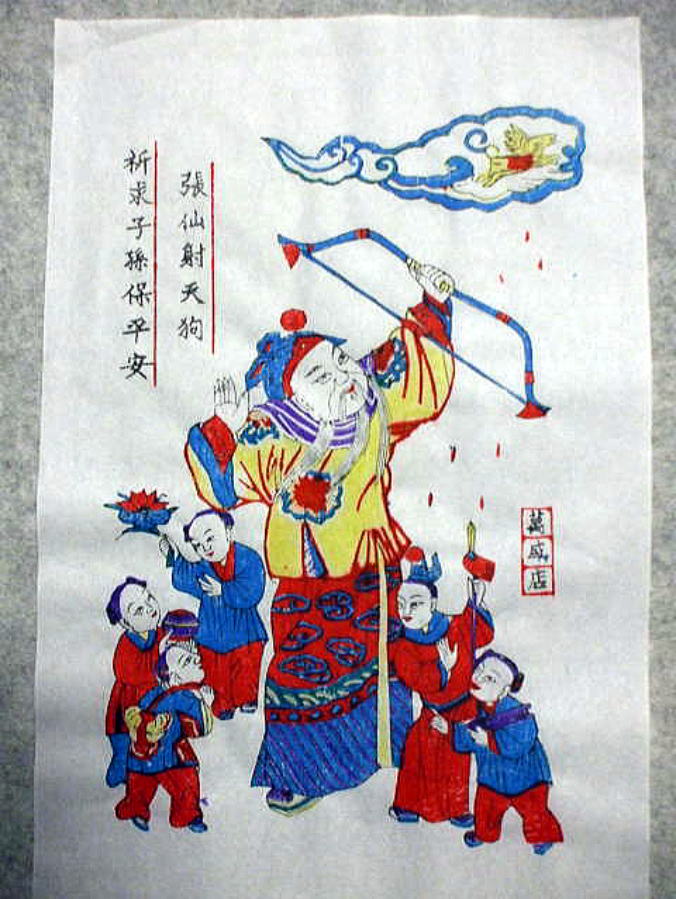 張仙射天狗
祈求子孫保平安
萬盛店